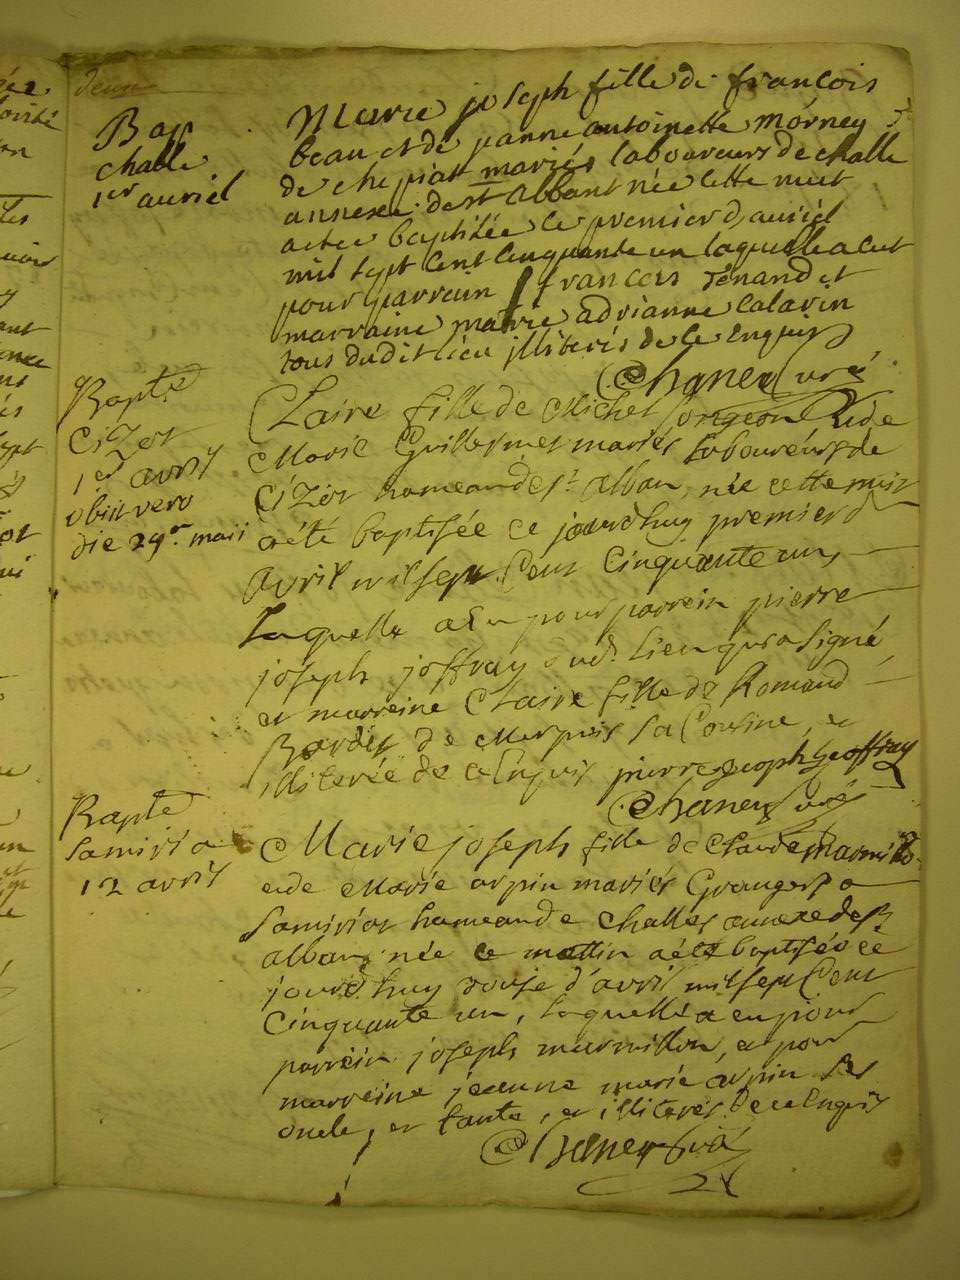 deux
Bap
challe
1er auriel
Marie joseph fille de francois
beau et de jeanne antoinette mórney
de chepiatt mariés laboureurs de challe
annexe de st albant née cette nuit
a etee baptisée le premier d'auriel
mil sept cent cinquante un laquelle a eut
pour parrain francois tenand et
marraine marie adrianne calavin
tous dudit lieu illiterés de le enquis
Chanel curé
Bapte
Cizot
1er avril
obiit vero
die 29a maii
Claire fille de Michel et de
Marie Guillermet mariés laboureurs de
Cizot hameau de st alban, née cette nuit
a été baptisée ce jourdhuy premier d
avril mil sept Cent Cinquante un,
Laquelle a eu pour parrein pierre
joseph joffray dud. Lieu qui a signé
et marreine Claire fille de Romand
de Merpuis sa Cousine, et
illiterée de ce Enquis pierre joseph Geoffray
Chanel curé
Bapte
Samiriat
12 avril
Marie joseph fille de Claude Marmillon
et de Marie arpin mariés Grangers a
Samiriat hameau de Challes annexe de St
alban née ce mattin a été baptisée ce
jourdhuy douze d'avril mil sept Cent
Cinquante un, laquelle a eu pour
parrein joseph marmillon, et pour
marreine jeanne marie arpin ses
oncle, et tante, et illiterés de ce Enquis
Chanel curé